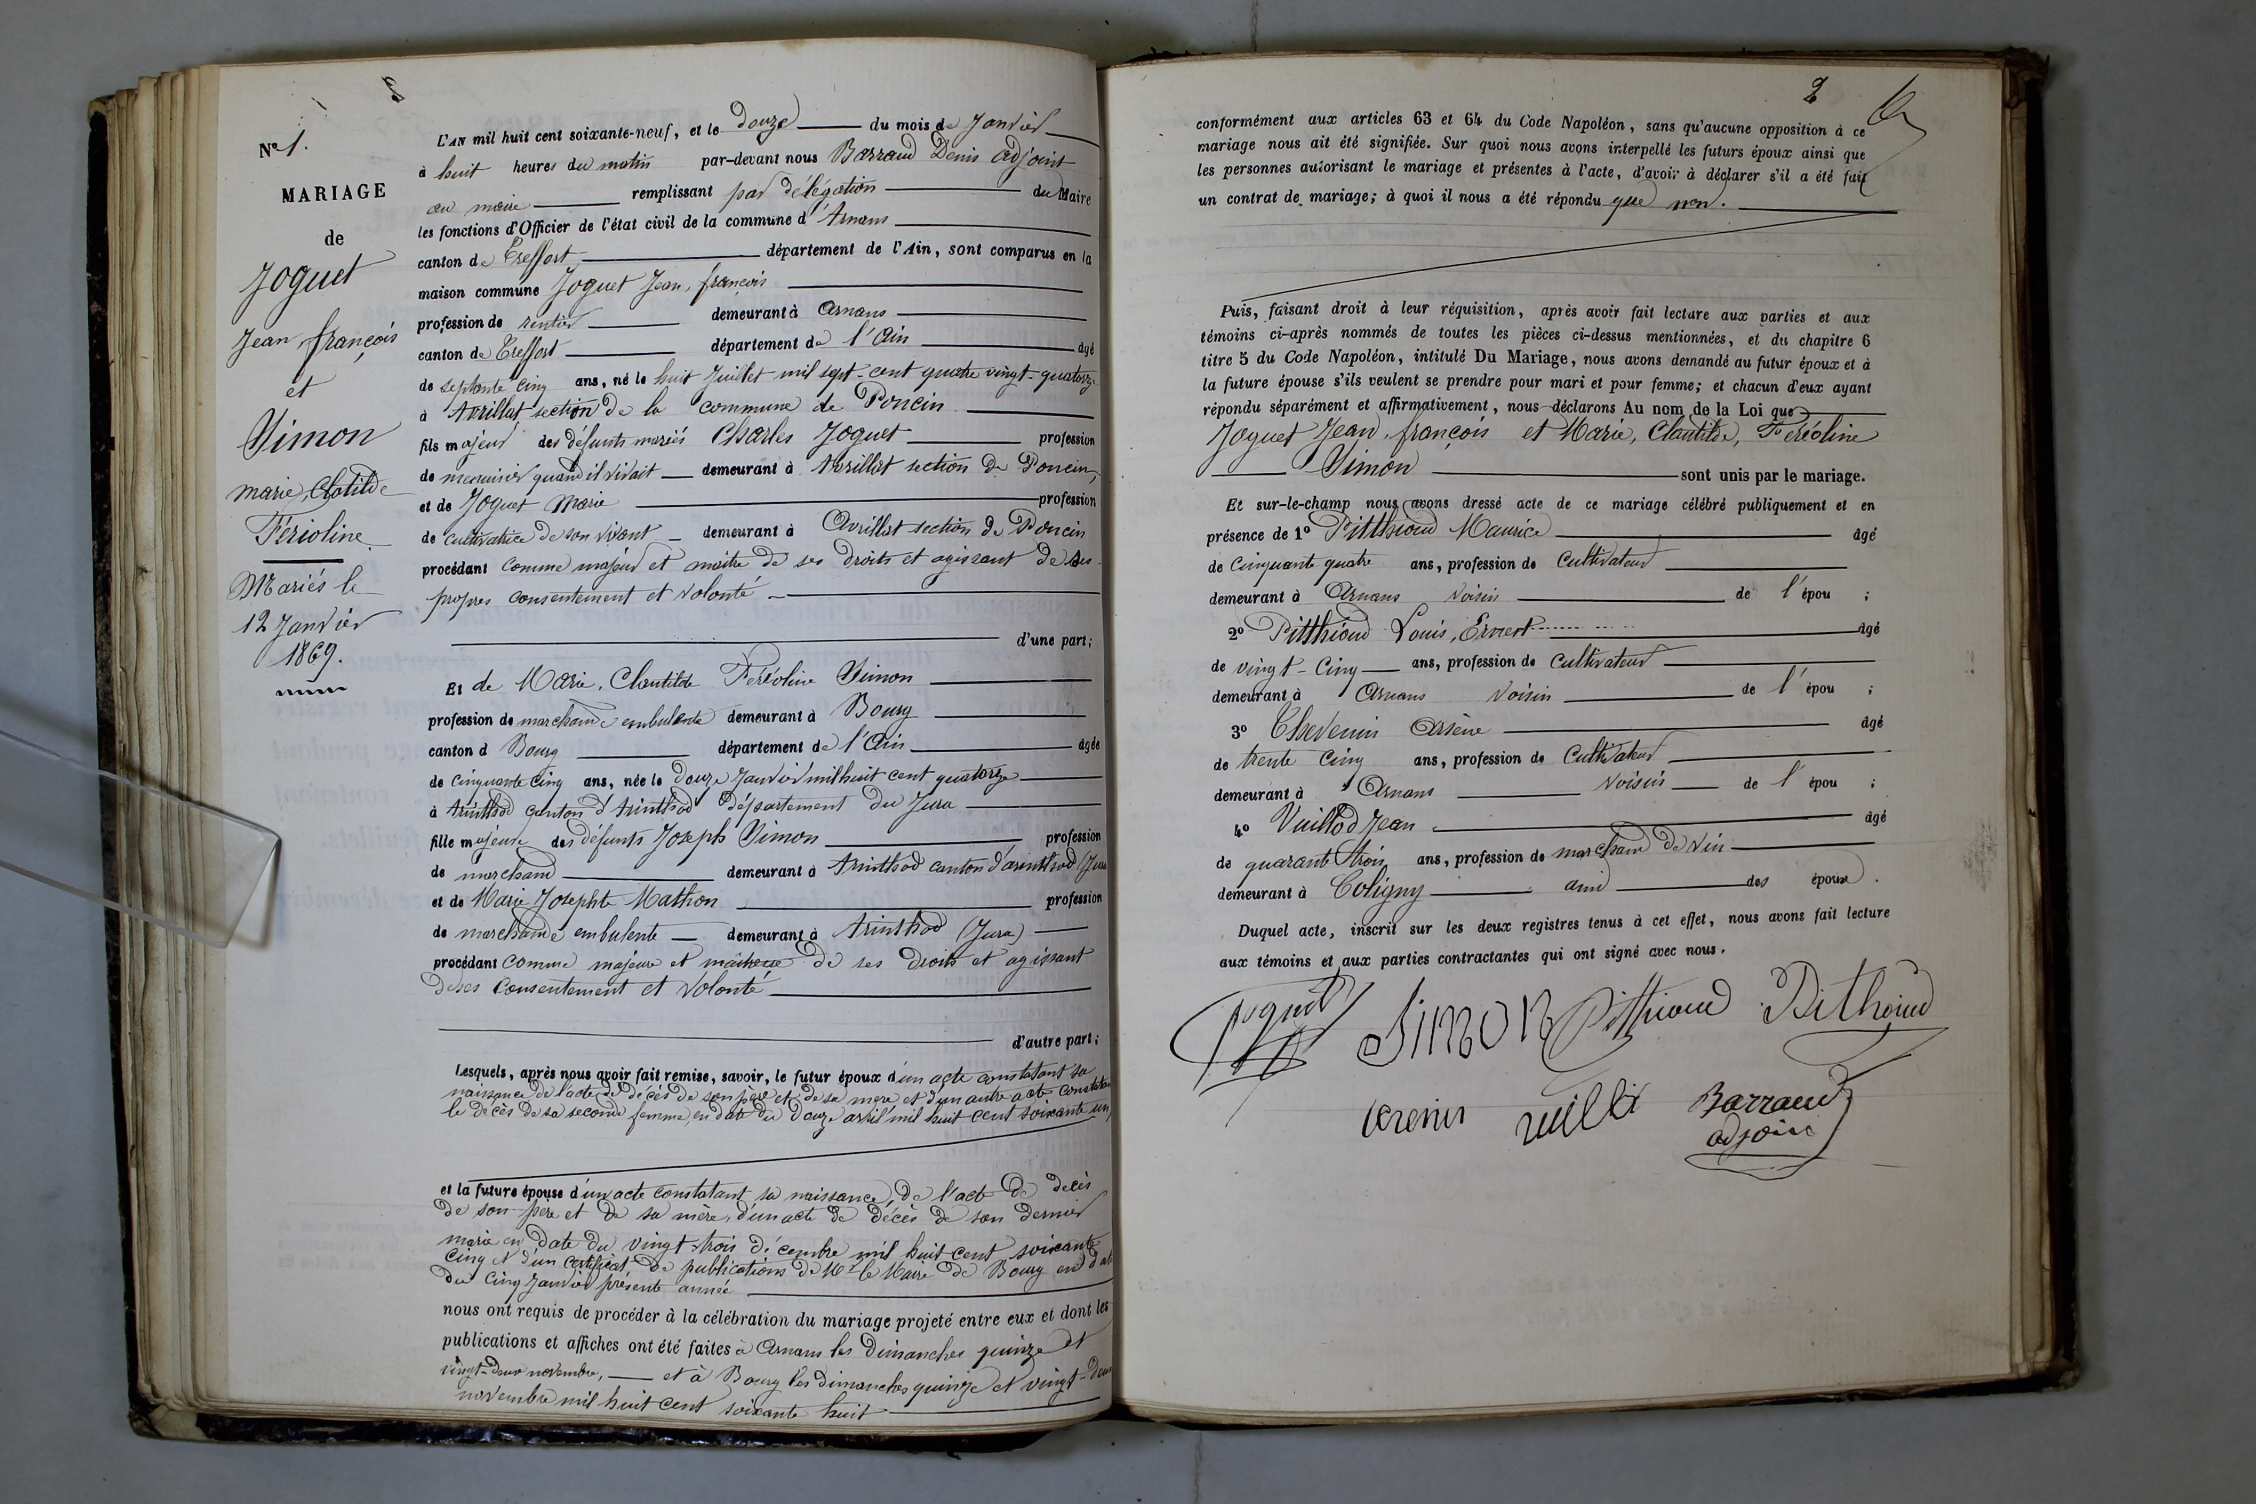 N° 1.
MARIAGE
de
Joguet
Jean, françois
et
Simon
marie, Clotilde
Férioline
Mariés le
12 Janvier
1869.
L'AN mil huit cent soixante-neuf, et le douze du mois de Janvier
à huit heures du matin par-devant nous Barraud Denis adjoint
au maire remplissant par délégation du Maire
les fonctions d'Officier de l'état civil de la commune d'Arnans
canton de Treffort département de l'Ain, sont comparus en la
maison commune Joguet Jean, françois
profession de rentier demeurant à Arnans
canton de Treffort département de l'Ain âgé
de septante cinq ans, né le huit Juillet mil sept-cent quatre vingt-quatorze
à Avrillat section de la commune de Poncin
fils majeur des défunts mariés Charles Joguet profession
de menuisier quand il vivait demeurant à Avrillat section de Poncin,
et de Joguet Marie profession
de cultivatrice de son vivant demeurant à Avrillat section de Poncin
procédant comme majeur et maître de ses droits et agissant de ses
propres consentement et volonté
d'une part;
Et de Marie, Clautilde Feréoline Simon
profession de marchande embulente demeurant à Bourg
canton d Bourg département de l'Ain âgée
de cinquante cinq ans, née le douze Janvier mil huit cent quatorze
à Arinthod canton d'Arinthod département du Jura
fille majeure des défunts Joseph Simon profession
de marchand demeurant à Arinthod canton d'arinthod (Jura
et de Marie Josephte Mathon profession
de marchande embulente demeurant à Arinthod (Jura)
procédant comme majeure et maîtresse de ses droits et agissant
de ses consentement et volonté
d'autre part;
Lesquels, après nous avoir fait remise, savoir, le futur époux d'un acte constatant sa
naissance de l'acte de décès de son père et de sa mère et d'un autre acte constatant
le décès de sa seconde femme, en date du douze avril mil huit cent soixante un,
et la future épouse d'un acte constatant sa naissance, de l'acte de décès
de son père et de sa mère, d'un acte de décès de son dernier
marie en date du vingt-trois décembre mil huit cent soixante
cinq et d'un certificat de publications de Mr le Maire de Bourg en date
du cinq Janvier présente année
nous ont requis de procéder à la célébration du mariage projeté entre eux et dont les
publications et affiches ont été faites à Arnans les dimanches quinze et
vingt-deux novembre, et à Bourg les dimanches quinze et vingt-deux
novembre mil huit cent soixante huit
2
conformément aux articles 63 et 64 du Code Napoléon, sans qu'aucune opposition à ce
mariage nous ait été signifiée. Sur quoi nous avons interpellé les futurs époux ainsi que
les personnes autorisant le mariage et présentes à l'acte, d'avoir à déclarer s'il a été fait
un contrat de mariage; à quoi il nous a été répondu que non.
Puis, faisant droit à leur réquisition, après avoir fait lecture aux parties et aux
témoins ci-après nommés de toutes les pièces ci-dessus mentionnées, et du chapitre 6
titre 5 du Code Napoléon, intitulé Du Mariage, nous avons demandé au futur époux et à
la future épouse s'ils veulent se prendre pour mari et pour femme; et chacun d'eux ayant
répondu séparément et affirmativement, nous déclarons Au nom de la Loi que
Joguet Jean, françois et Marie, Clautilde, Feréoline
Simon sont unis par le mariage.
Et sur-le-champ nous avons dressé acte de ce mariage célébré publiquement et en
présence de 1° Pitthioud Maurice âgé
de Cinquante quatre ans, profession de Cultivateur
demeurant à Arnans voisin de l'épou ;
2° Pitthioud Louis, Ernest âgé
de vingt-cinq ans, profession de cultivateur
demeurant à Arnans voisin de l'épou ;
3° Thevenin Arsène âgé
de trente cinq ans, profession de Cultivateur
demeurant à Arnans voisin de l'épou ;
4° Vuillod Jean âgé
de quarante trois ans, profession de marchand de vin
demeurant à Coligny ami des époux.
Duquel acte, inscrit sur les deux registres tenus à cet effet, nous avons fait lecture
aux témoins et aux parties contractantes qui ont signé avec nous.
Joguet Simon Pitthioud Pithioud
Barraud
adjoint